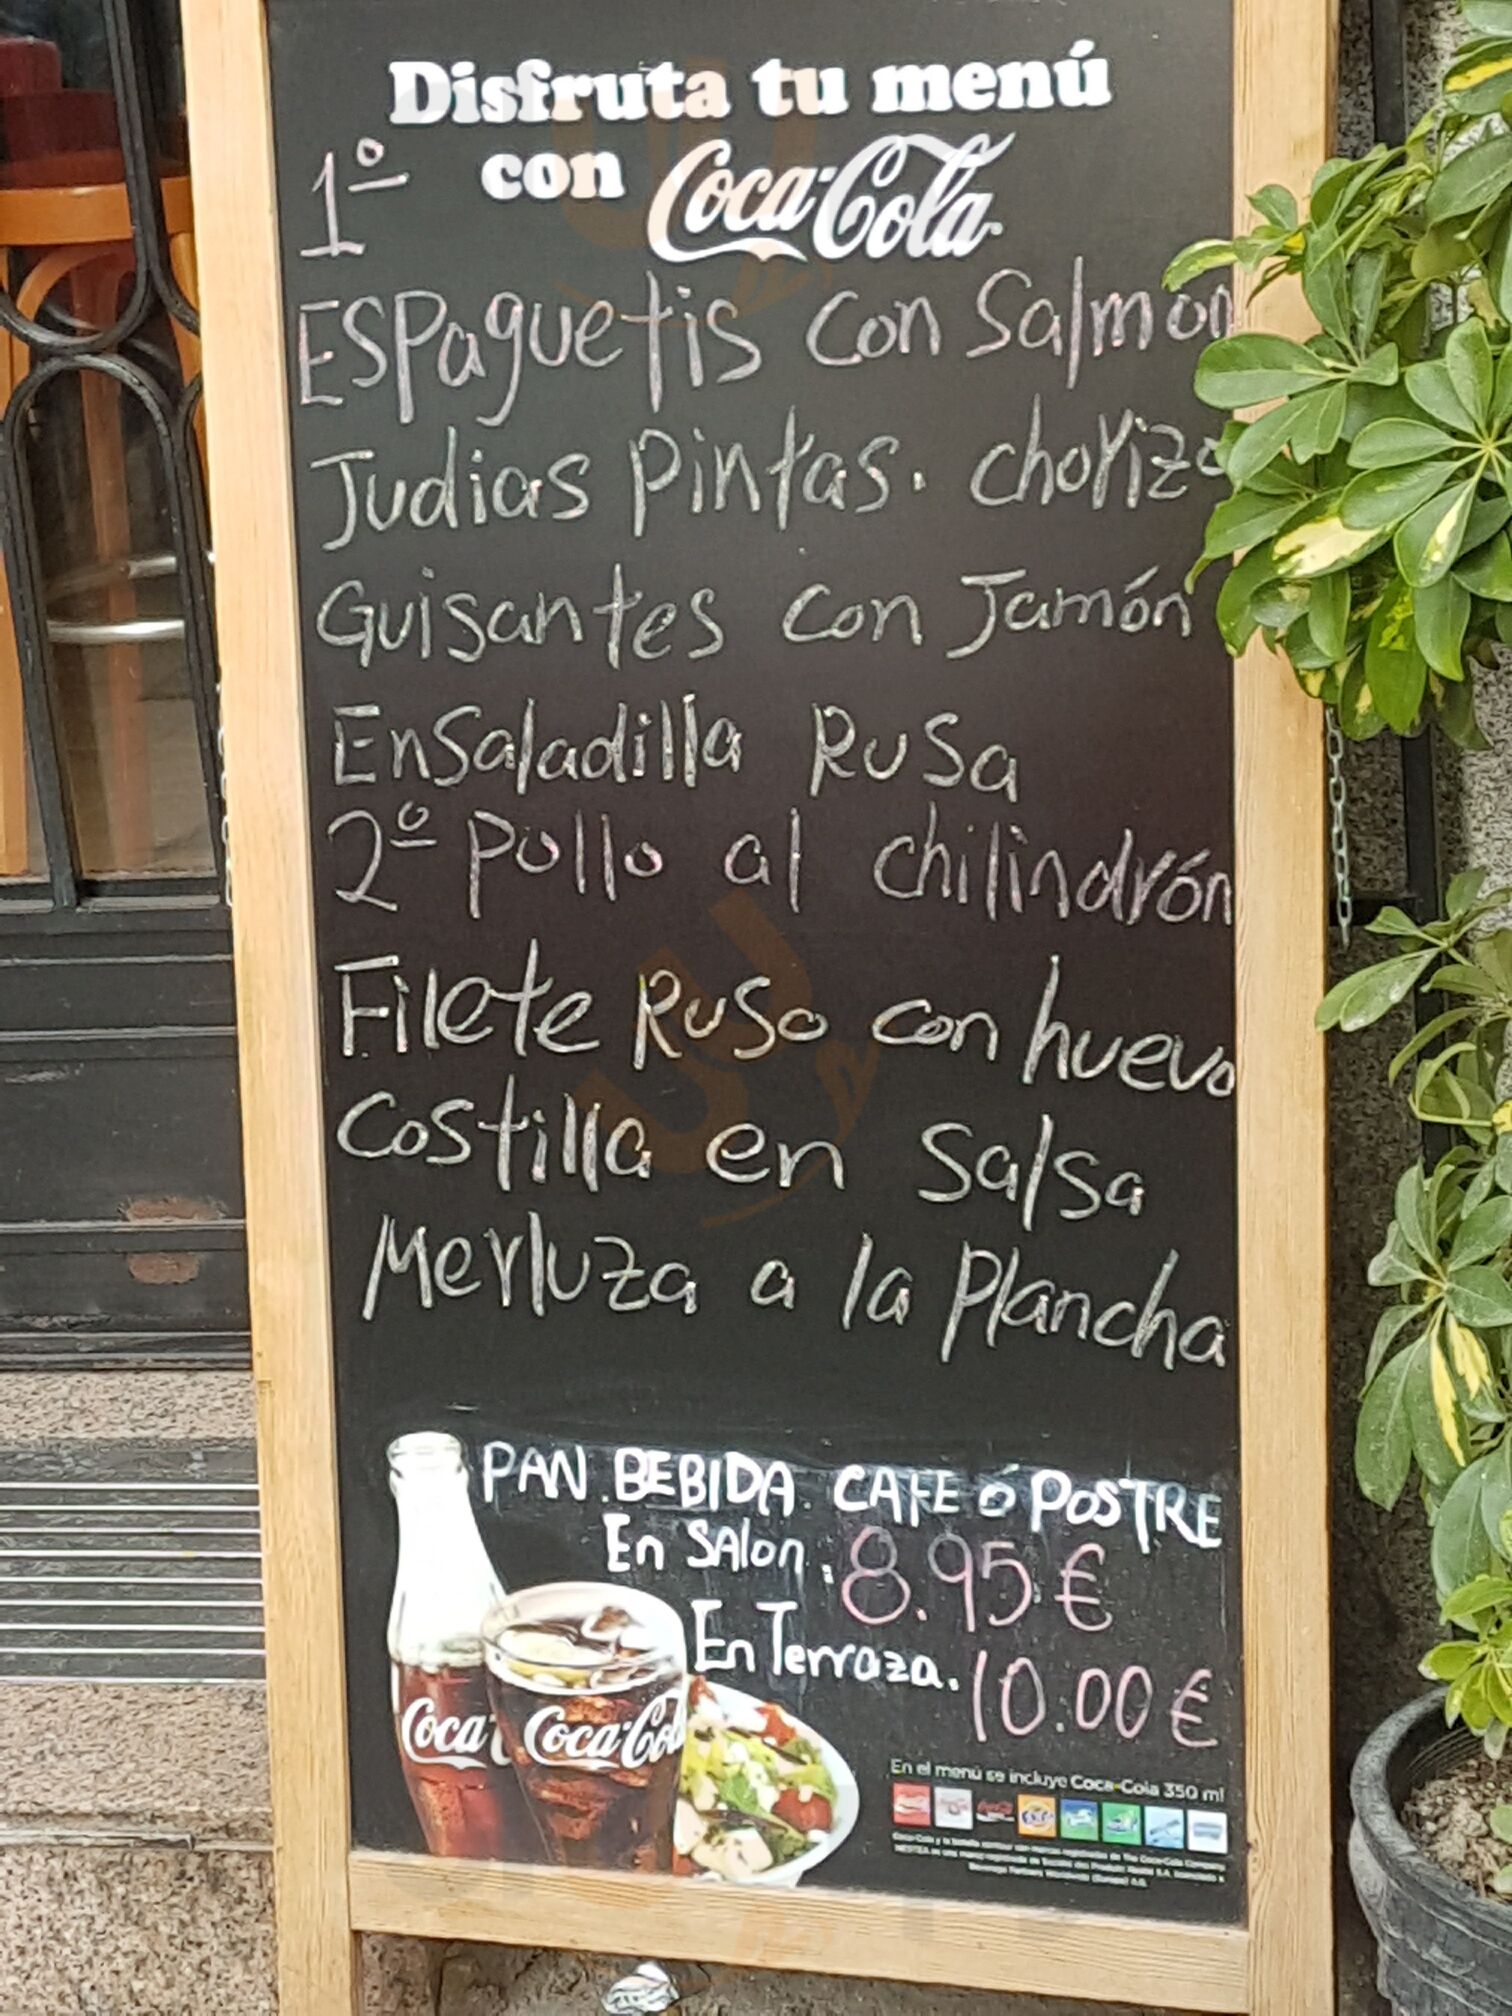 Disfruta tu menú
con Coca-Cola
1º
Espaguetis con Salmón
Judias pintas. chorizo
Guisantes con Jamón
Ensaladilla Rusa
2º pollo al chilindrón
Filete Ruso con huevo
Costilla en Salsa
Merluza a la plancha
PAN. BEBIDA. CAFE ó POSTRE
En SAlon. 8.95 €
En Terraza. 10.00 €
Coca Coca-Cola
En el menú se incluye Coca-Cola 350 ml